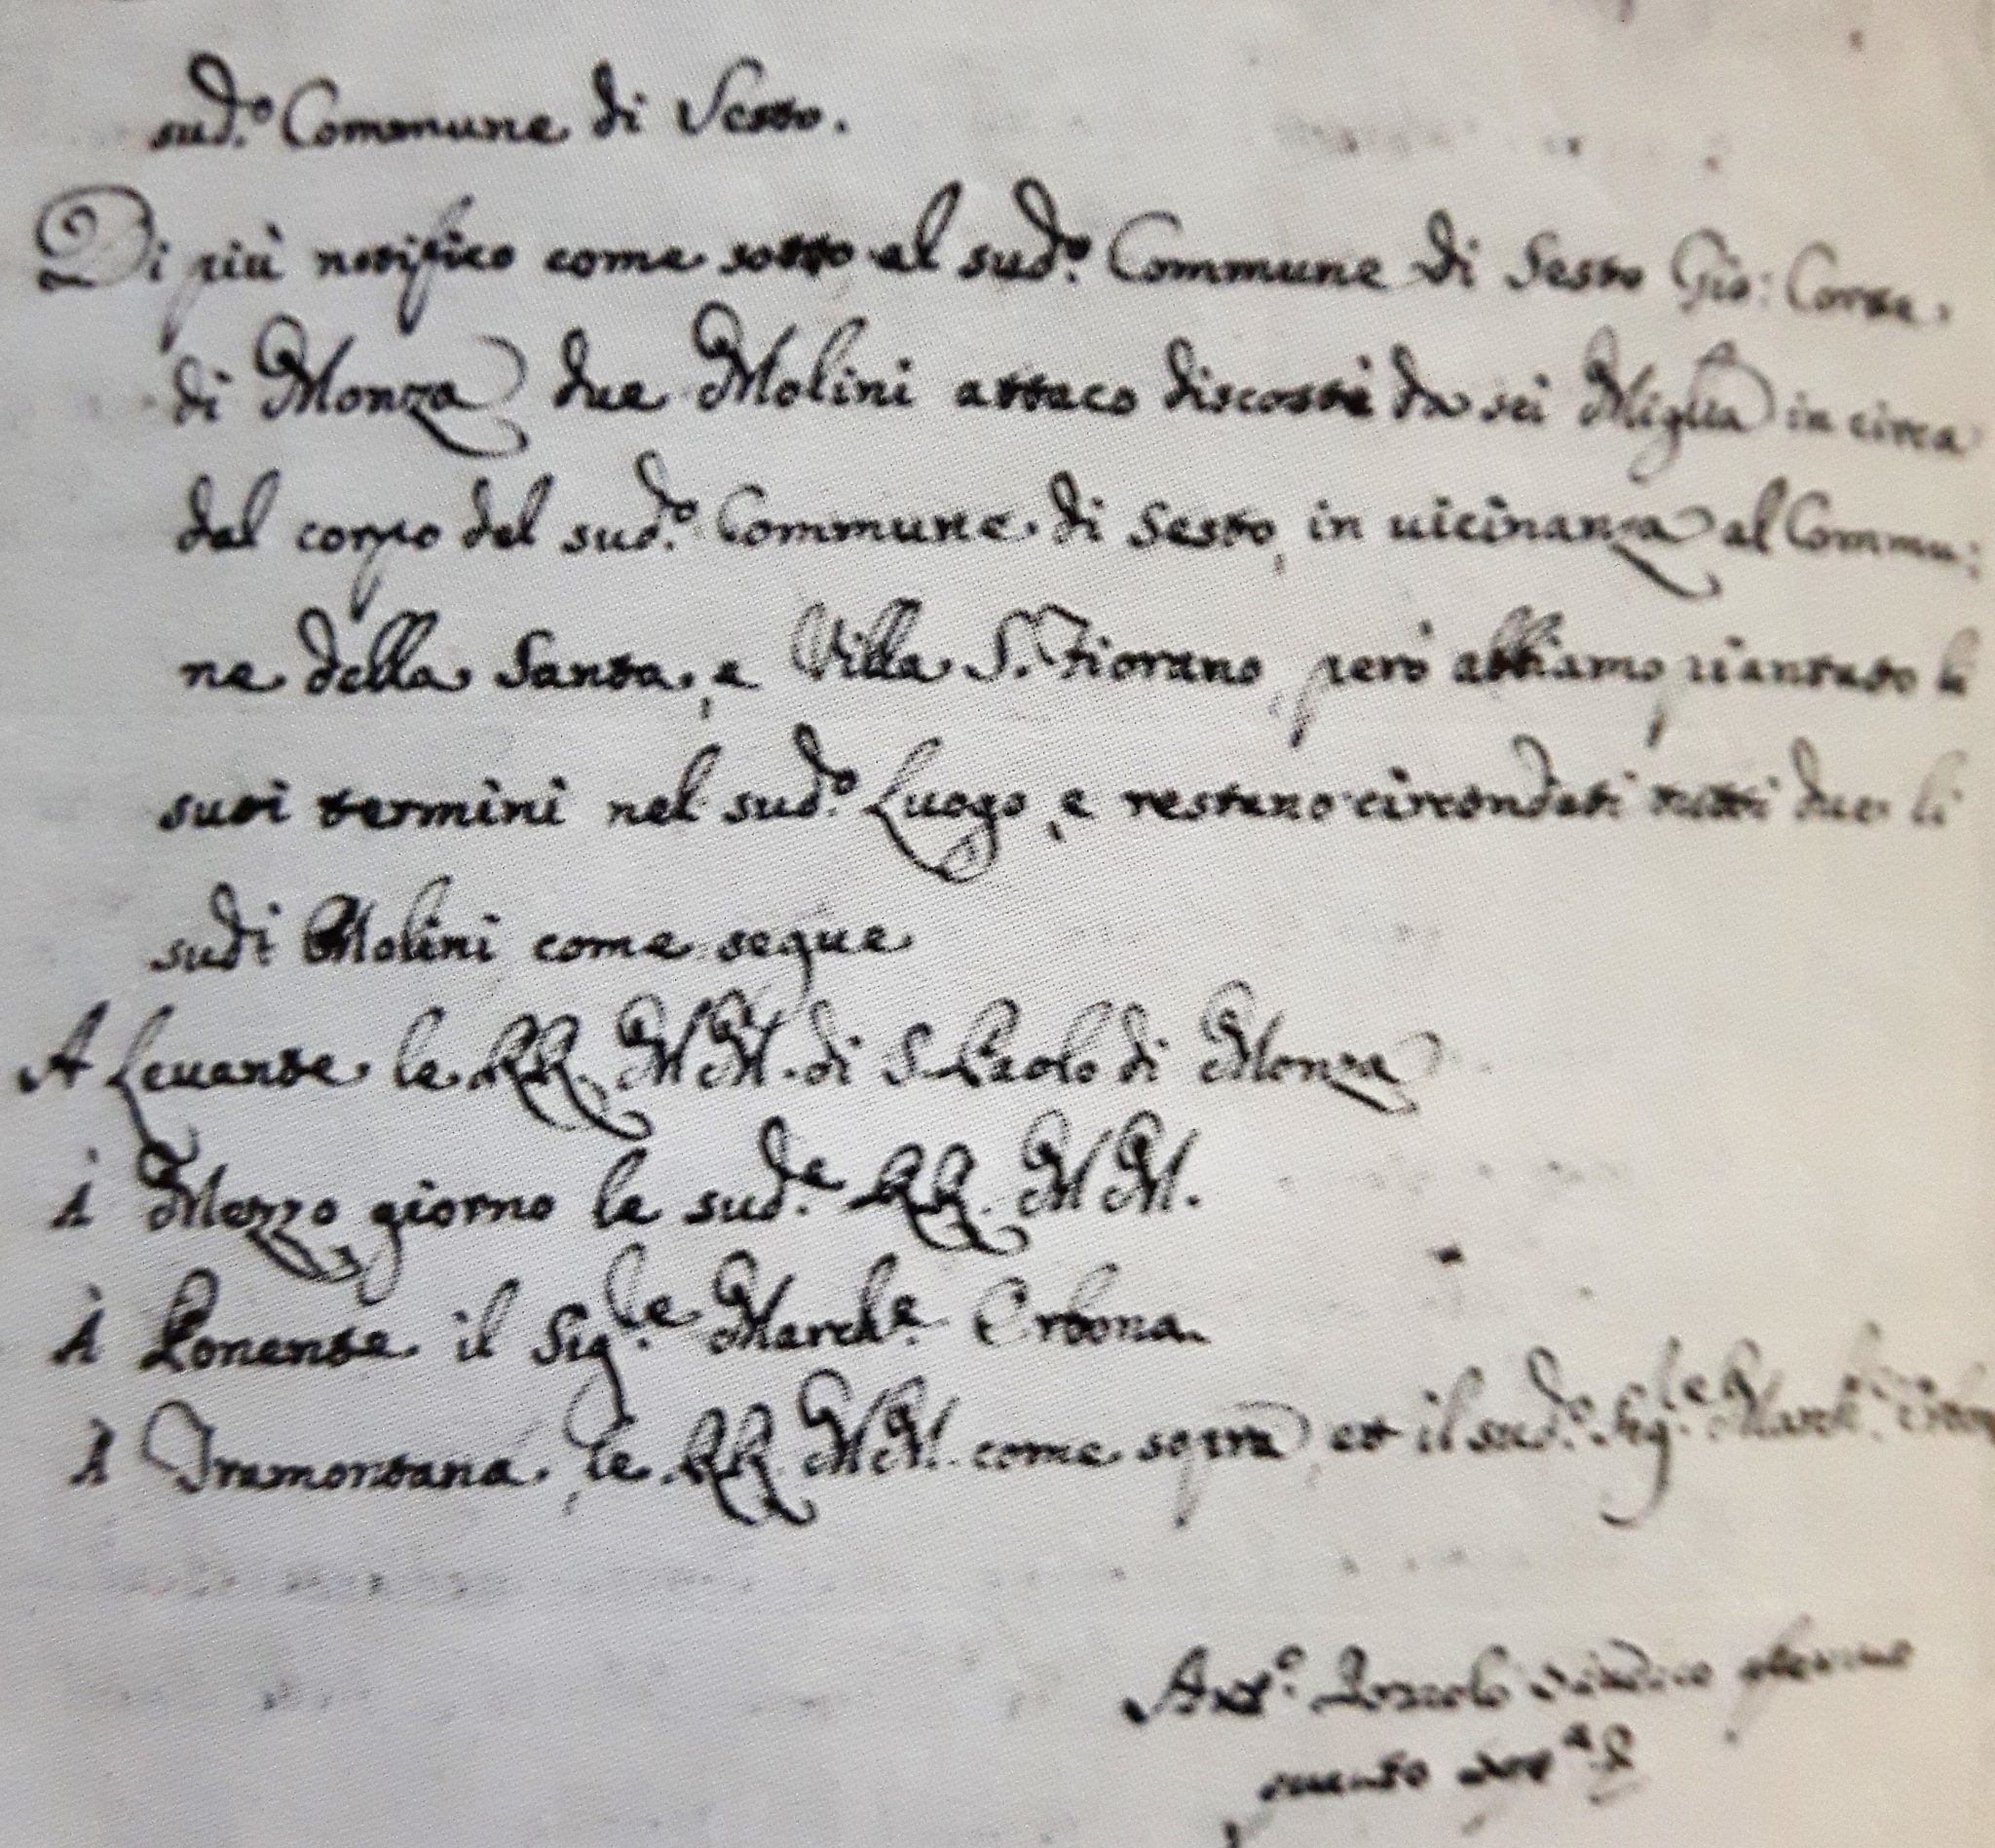 sud.º Commune di Sesto.
Di più notifico come sotto al sud.º Commune di Sesto Gio: Corte
di Monza due Molini attaco discosti da sei Miglia in circa
dal corpo del sud.º Commune di Sesto, in uicinanza al Commu:
ne della Santa, e Villa S. Fiorano, però abbiamo piantato li
suoi termini nel sud.º Luogo, e restano circondati tutti due li
sudi Molini come segue
A Leuante le RR. MM. di S. Paolo di Monza
À Mezzo giorno le sud.e RR. MM.
À Ponente il Sig.le March.e Erbona
A Tramontana, le RR. MM. come sopra, et il sud.º Sig.le March.e
Ant.º Sindico afermo
quanto sop.a